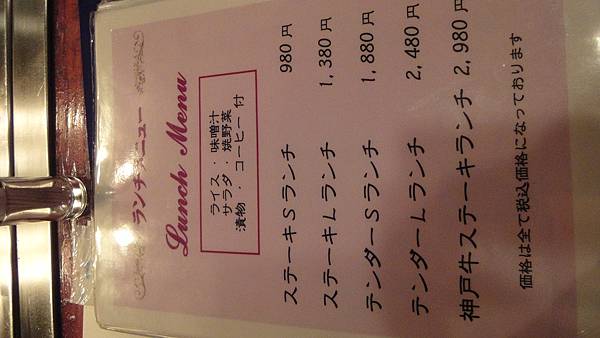 ランチメニュー
Lunch Menu
ライス・味噌汁
サラダ・焼野菜
漬物・コーヒー付
ステーキSランチ 980円
ステーキLランチ 1,380円
テンダーSランチ 1,880円
テンダーLランチ 2,480円
神戸牛ステーキランチ 2,980円
価格は全て税込価格になっております